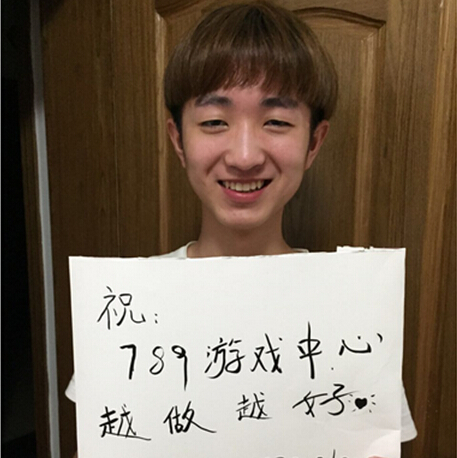 祝:
789游戏中心
越做越好